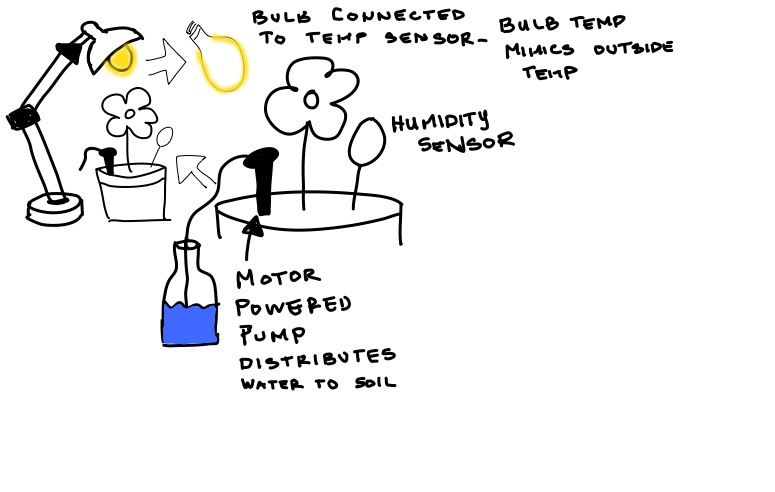 BULB CONNECTED
TO TEMP SENSOR-
BULB TEMP
MIMICS OUTSIDE
TEMP
HUMIDITY
SENSOR
MOTOR
POWERED
PUMP
DISTRIBUTES
WATER TO SOIL